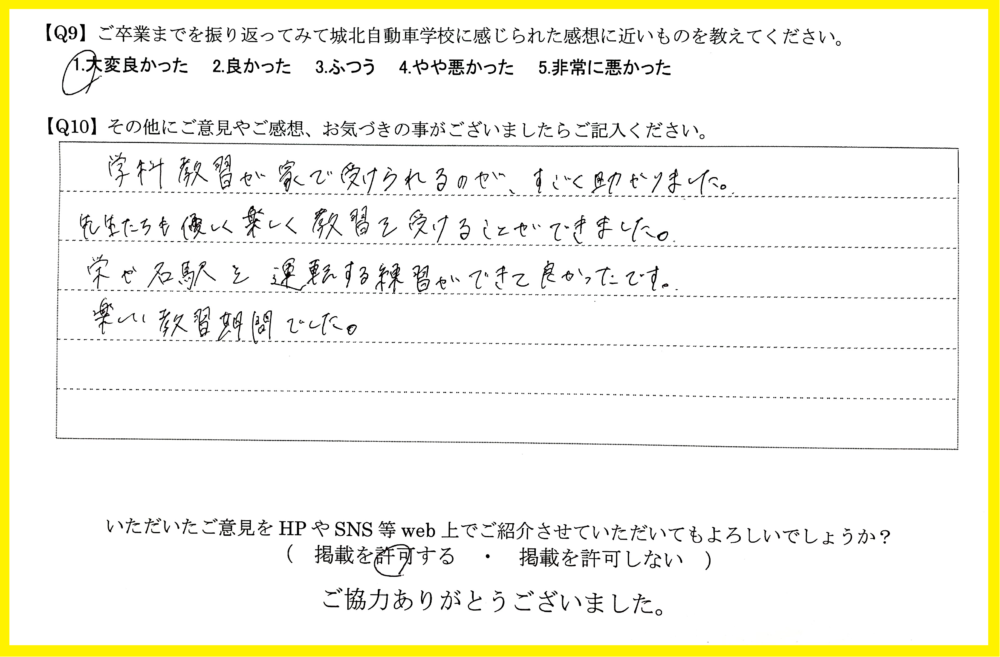 【Q9】ご卒業までを振り返ってみて城北自動車学校に感じられた感想に近いものを教えてください。
1.大変良かった 2.良かった 3.ふつう 4.やや悪かった 5.非常に悪かった
【Q10】その他にご意見やご感想、お気づきの事がございましたらご記入ください。
学科教習が家で受けられるのが、すごく助かりました。
先生たちも優しく楽しく教習を受けることができました。
栄や名駅を運転する練習ができて良かったです。
楽しい教習期間でした。
いただいたご意見をHPやSNS等web上でご紹介させていただいてもよろしいでしょうか？
( 掲載を許可する ・ 掲載を許可しない )
ご協力ありがとうございました。